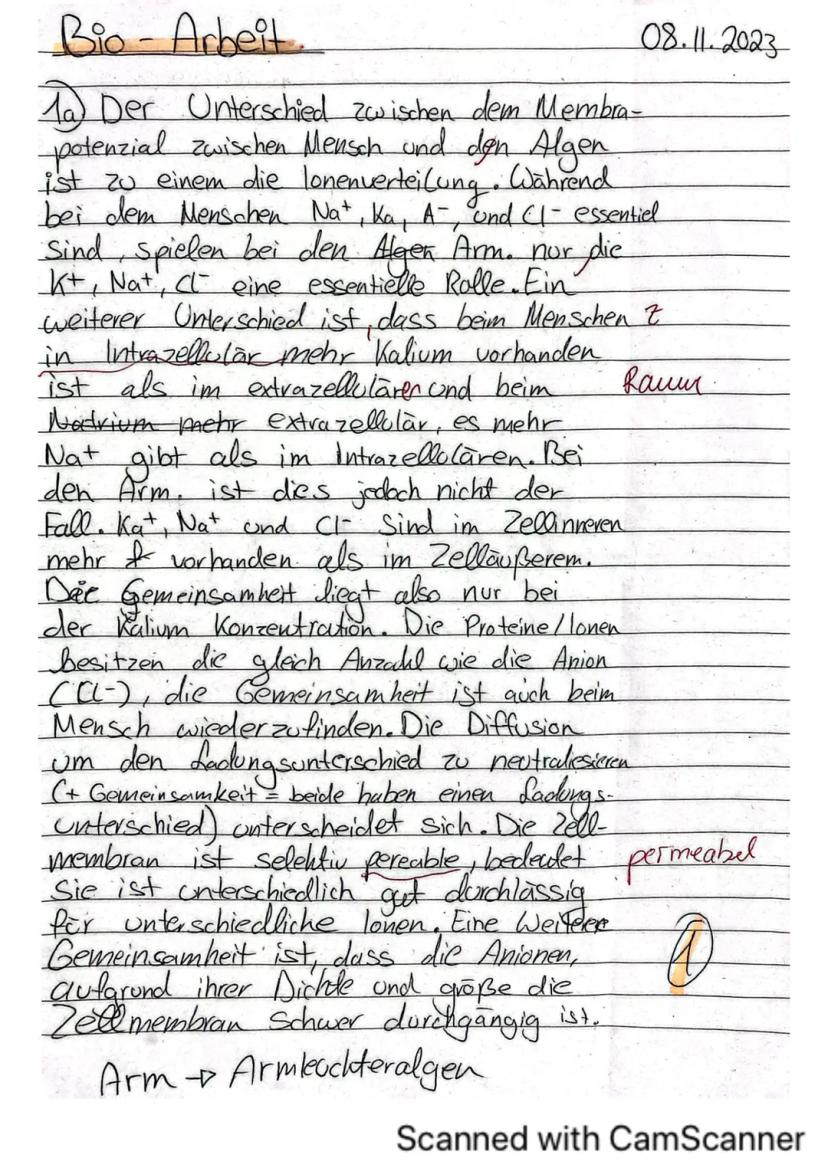 Bio - Arbeit 08.11.2023
1a) Der Unterschied zwischen dem Membra-
potenzial zwischen Mensch und den Algen
ist zu einem die Ionenverteilung. Während
bei dem Menschen Na+, Ka, A-, und Cl- essentiel
sind, spielen bei den Algen Arm. nur die
K+, Na+, Cl- eine essentielle Rolle. Ein
weiterer Unterschied ist, dass beim Menschen Z
in Intrazellulär mehr Kalium vorhanden
ist als im extrazellulären und beim Raum
Natrium mehr extrazellulär, es mehr
Na+ gibt als im Intrazellulären. Bei
den Arm. ist dies jedoch nicht der
Fall. Ka+, Na+ und Cl- sind im Zellinneren
mehr vorhanden als im Zelläußerem.
Die Gemeinsamheit liegt also nur bei
der Kalium Konzentration. Die Proteine/Ionen
besitzen die gleich Anzahl wie die Anion
(Cl-), die Gemeinsamheit ist auch beim
Mensch wiederzufinden. Die Diffusion
um den Ladungsunterschied zu neutraliesieren
(+ Gemeinsamkeit = beide haben einen Ladungs-
unterschied) unterscheidet sich. Die Zell-
membran ist selektiv pereable, bedeutet permeabel
Sie ist unterschiedlich gut durchlässig
für unterschiedliche Ionen. Eine Weitere
Gemeinsamheit ist, dass die Anionen, 1
aufgrund ihrer Dichte und größe die
Zellmembran schwer durchgängig ist.
Arm → Armleuchteralgen
Scanned with CamScanner